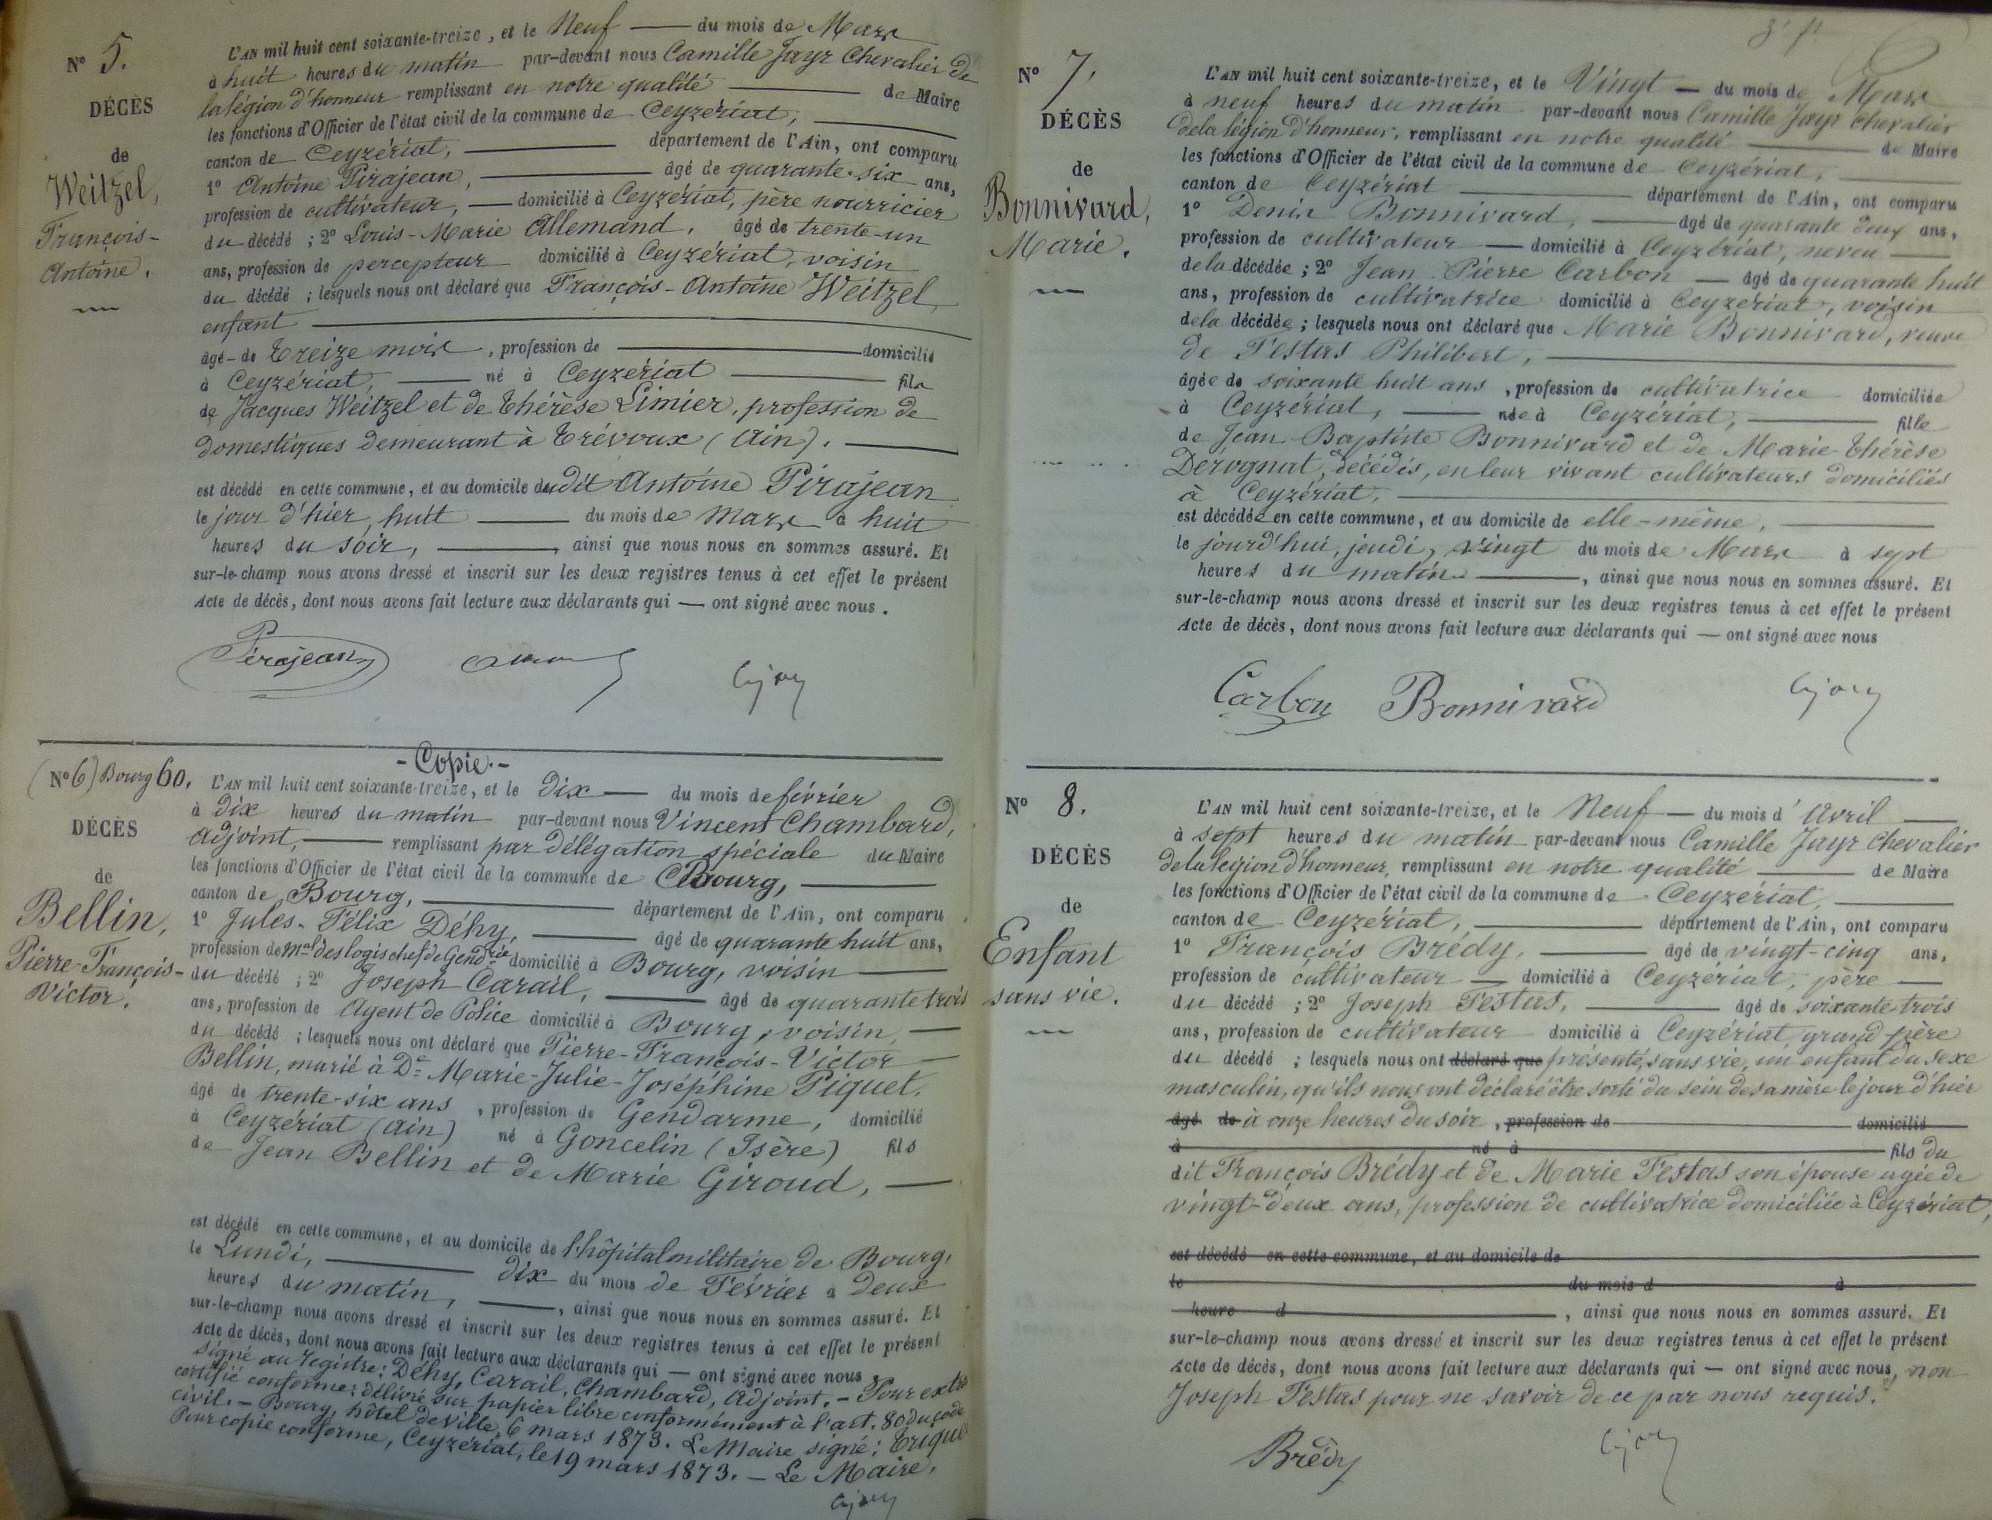 N° 5.
DÉCÈS
de
Weitzel,
François-
Antoine.
L'AN mil huit cent soixante-treize, et le Neuf — du mois de Mars
à huit heures du matin par-devant nous Camille Jayr Chevalier de
la légion d'honneur remplissant en notre qualité — de Maire
les fonctions d'Officier de l'état civil de la commune de Ceyzériat, —
canton de Ceyzériat, — département de l'Ain, ont comparu
1° Antoine Pirajean, — âgé de quarante-six ans,
profession de cultivateur, — domicilié à Ceyzériat, père nourricier
du décédé ; 2° Louis-Marie Allemand, âgé de trente-un
ans, profession de percepteur domicilié à Ceyzériat, voisin
du décédé ; lesquels nous ont déclaré que François-Antoine Weitzel,
enfant —
âgé de treize mois, profession de — domicilié
à Ceyzériat, — né à Ceyzériat — fils
de Jacques Weitzel et de Thérèse Limier, profession de
domestiques demeurant à Trévoux (Ain). —
est décédé en cette commune, et au domicile dudit Antoine Pirajean
le jour d'hier, huit — du mois de Mars à huit
heures du soir, —, ainsi que nous nous en sommes assuré. Et
sur-le-champ nous avons dressé et inscrit sur les deux registres tenus à cet effet le présent
Acte de décès, dont nous avons fait lecture aux déclarants qui — ont signé avec nous.
Pirajean
- Copie. -
(N° 6) Bourg 60.
DÉCÈS
de
Bellin,
Pierre-François-
Victor.
L'AN mil huit cent soixante-treize, et le dix — du mois de février
à dix heures du matin par-devant nous Vincent Chambard,
Adjoint, — remplissant par délégation spéciale du Maire
les fonctions d'Officier de l'état civil de la commune de Bourg, —
canton de Bourg, — département de l'Ain, ont comparu
1° Jules-Félix Déhy, — âgé de quarante huit ans,
profession de Mal des logis chef de Gendrie domicilié à Bourg, voisin —
du décédé ; 2° Joseph Carail, — âgé de quarante trois
ans, profession de Agent de Police domicilié à Bourg, voisin, —
du décédé ; lesquels nous ont déclaré que Pierre-François-Victor —
Bellin, marié à De Marie-Julie-Joséphine Piquet,
âgé de trente-six ans, profession de Gendarme, domicilié
à Ceyzériat (Ain) né à Goncelin (Isère) fils
de Jean Bellin et de Marie Giroud, —
est décédé en cette commune, et au domicile de l'hôpital militaire de Bourg,
le Lundi, — dix du mois de Février à deux
heures du matin, —, ainsi que nous nous en sommes assuré. Et
sur-le-champ nous avons dressé et inscrit sur les deux registres tenus à cet effet le présent
Acte de décès, dont nous avons fait lecture aux déclarants qui — ont signé avec nous.
Signé au registre: Déhy, Carail, Chambard, Adjoint. - Pour extr
certifié conforme; délivré sur papier libre conformément à l'art. 80 du code
civil. - Bourg, hôtel de ville, 6 mars 1873. Le Maire signé:
Pour copie conforme, Ceyzériat, le 19 mars 1873. - Le Maire,
N° 7.
DÉCÈS
de
Bonnivard,
Marie.
L'AN mil huit cent soixante-treize, et le Vingt — du mois de Mars
à neuf heures du matin par-devant nous Camille Jayr Chevalier
de la légion d'honneur, remplissant en notre qualité — de Maire
les fonctions d'Officier de l'état civil de la commune de Ceyzériat, —
canton de Ceyzériat — département de l'Ain, ont comparu
1° Denis Bonnivard, — âgé de quarante deux ans,
profession de cultivateur — domicilié à Ceyzériat, neveu —
de la décédée ; 2° Jean Pierre Carbon — âgé de quarante huit
ans, profession de cultivatrice domicilié à Ceyzériat, voisin
de la décédée ; lesquels nous ont déclaré que Marie Bonnivard, veuve
de Festas Philibert, —
âgée de soixante huit ans, profession de cultivatrice domiciliée
à Ceyzériat, — née à Ceyzériat, — fille
de Jean-Baptiste Bonnivard et de Marie-Thérèse
Dérognat, décédés, en leur vivant cultivateurs domiciliés
à Ceyzériat, —
est décédée en cette commune, et au domicile de elle-même, —
le jourd'hui, jeudi, vingt du mois de Mars à sept
heures du matin —, ainsi que nous nous en sommes assuré. Et
sur-le-champ nous avons dressé et inscrit sur les deux registres tenus à cet effet le présent
Acte de décès, dont nous avons fait lecture aux déclarants qui — ont signé avec nous
Carbon Bonnivard
N° 8.
DÉCÈS
de
Enfant
sans vie.
L'AN mil huit cent soixante-treize, et le Neuf — du mois d'Avril —
à sept heures du matin par-devant nous Camille Jayr Chevalier
de la légion d'honneur, remplissant en notre qualité — de Maire
les fonctions d'Officier de l'état civil de la commune de Ceyzériat, —
canton de Ceyzériat, — département de l'Ain, ont comparu
1° François Brédy, — âgé de vingt-cinq ans,
profession de cultivateur — domicilié à Ceyzériat, père —
du décédé ; 2° Joseph Festas, — âgé de soixante trois
ans, profession de cultivateur domicilié à Ceyzériat, grand père
du décédé ; lesquels nous ont déclaré que présenté, sans vie, un enfant du sexe
masculin, qu'ils nous ont déclaré être sorti du sein de sa mère le jour d'hier
âgé de à onze heures du soir, profession de — domicilié
à — né à — fils du
dit François Brédy et de Marie Festas son épouse agée de
vingt-deux ans, profession de cultivatrice domiciliée à Ceyzériat,
est décédé en cette commune, et au domicile de
le — du mois d — à
heure d —, ainsi que nous nous en sommes assuré. Et
sur-le-champ nous avons dressé et inscrit sur les deux registres tenus à cet effet le présent
Acte de décès, dont nous avons fait lecture aux déclarants qui — ont signé avec nous, non
Joseph Festas pour ne savoir de ce par nous requis.
Brédy